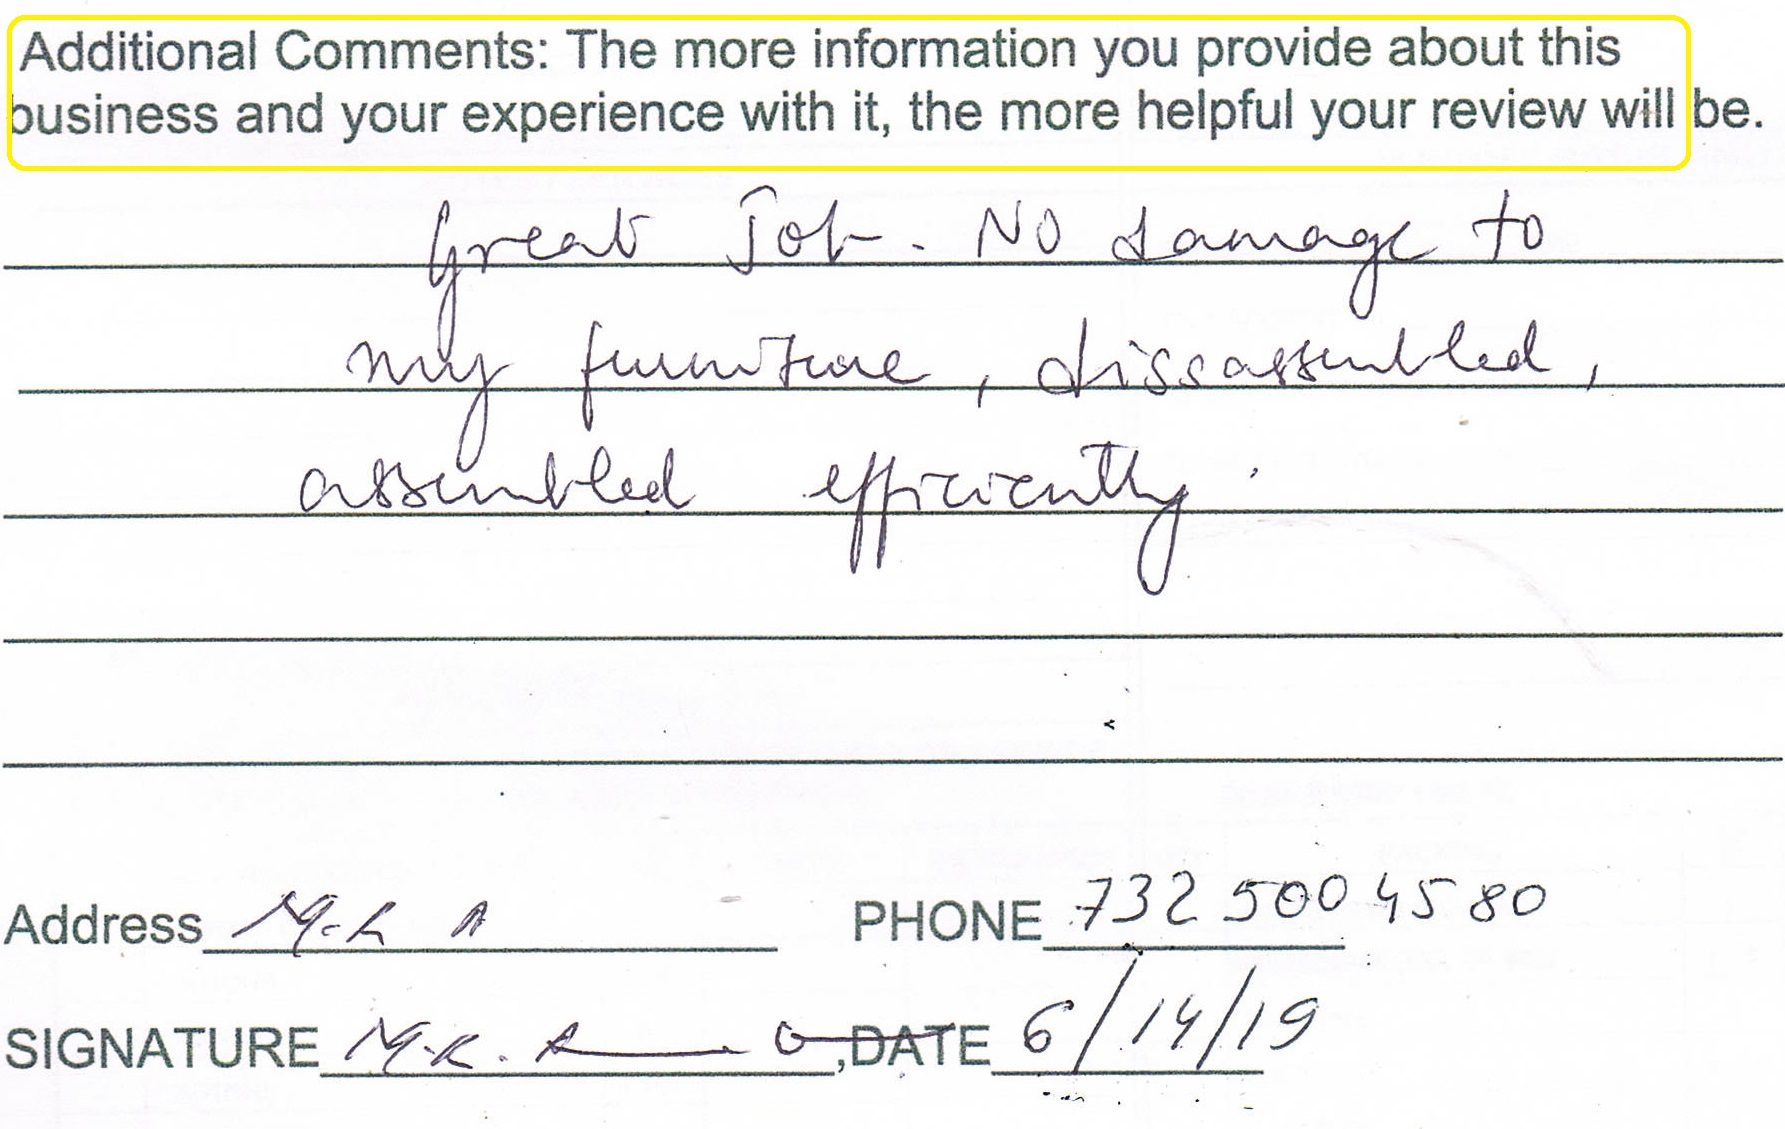 Additional Comments: The more information you provide about this
business and your experience with it, the more helpful your review will be.
Great Job. No damage to
my furniture, dissassembled,
assembled efficiently.
Address
PHONE 732 500 4580
SIGNATURE ,DATE 6/14/19